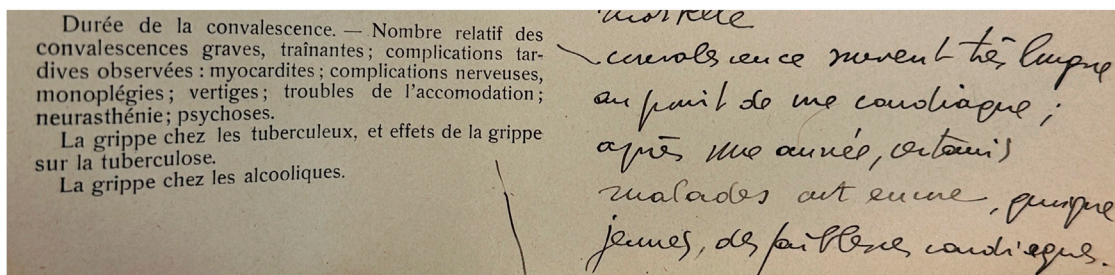 Durée de la convalescence. — Nombre relatif des
convalescences graves, traînantes ; complications tar-
dives observées : myocardites ; complications nerveuses,
monoplégies ; vertiges ; troubles de l'accomodation ;
neurasthénie ; psychoses.
La grippe chez les tuberculeux, et effets de la grippe
sur la tuberculose.
La grippe chez les alcooliques.
mortelle
convalescence souvent très longue
au point de vue cardiaque ;
après une année, certains
malades ont encore, quoique
jeunes, des faiblesses cardiaques.